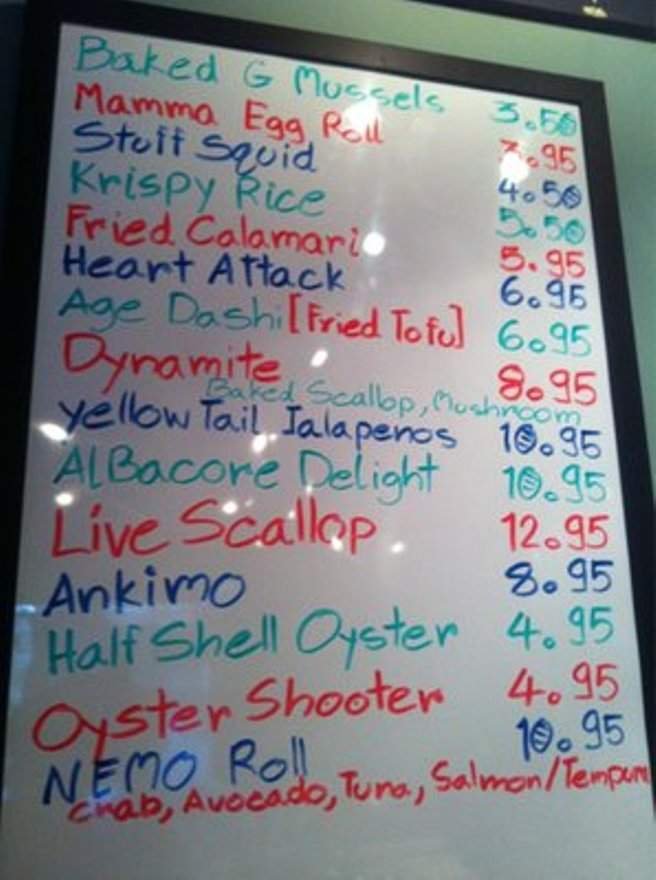 Baked G Mussels 3.50
Mamma Egg Roll 3.95
Stuff Squid 4.50
Krispy Rice 5.50
Fried Calamari 5.95
Heart Attack 6.95
Age Dashi [Fried Tofu] 6.95
Dynamite 8.95
Baked Scallop, Mushroom
Yellow Tail Jalapenos 10.95
AlBacore Delight 10.95
Live Scallop 12.95
Ankimo 8.95
Half Shell Oyster 4.95
Oyster Shooter 4.95
NEMO Roll 10.95
Crab, Avocado, Tuna, Salmon/Tempura